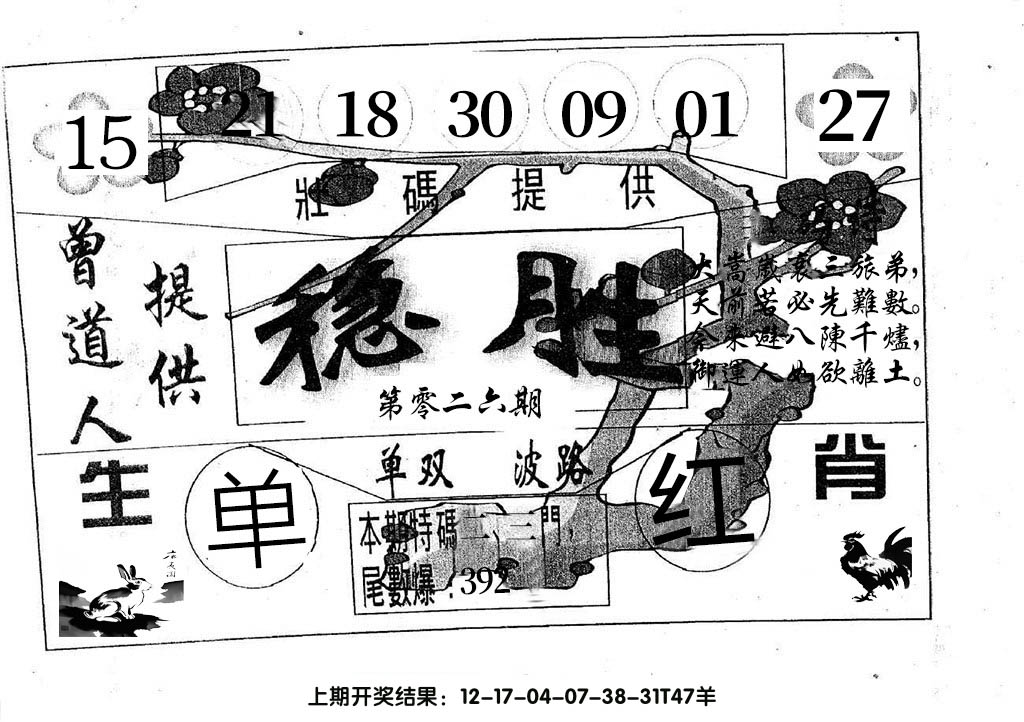 15 21 18 30 09 01 27
壯碼提供
特
曾道人
提供
稳胜
第零二六期
大嵩感裏三旅弟,
天前若必先難數。
佘來避八陳千燼,
御運人如欲離土。
单双 波路
生
单
红
肖
本期特碼二、三門,
尾數爆:392
上期开奖结果:12-17-04-07-38-31T47羊